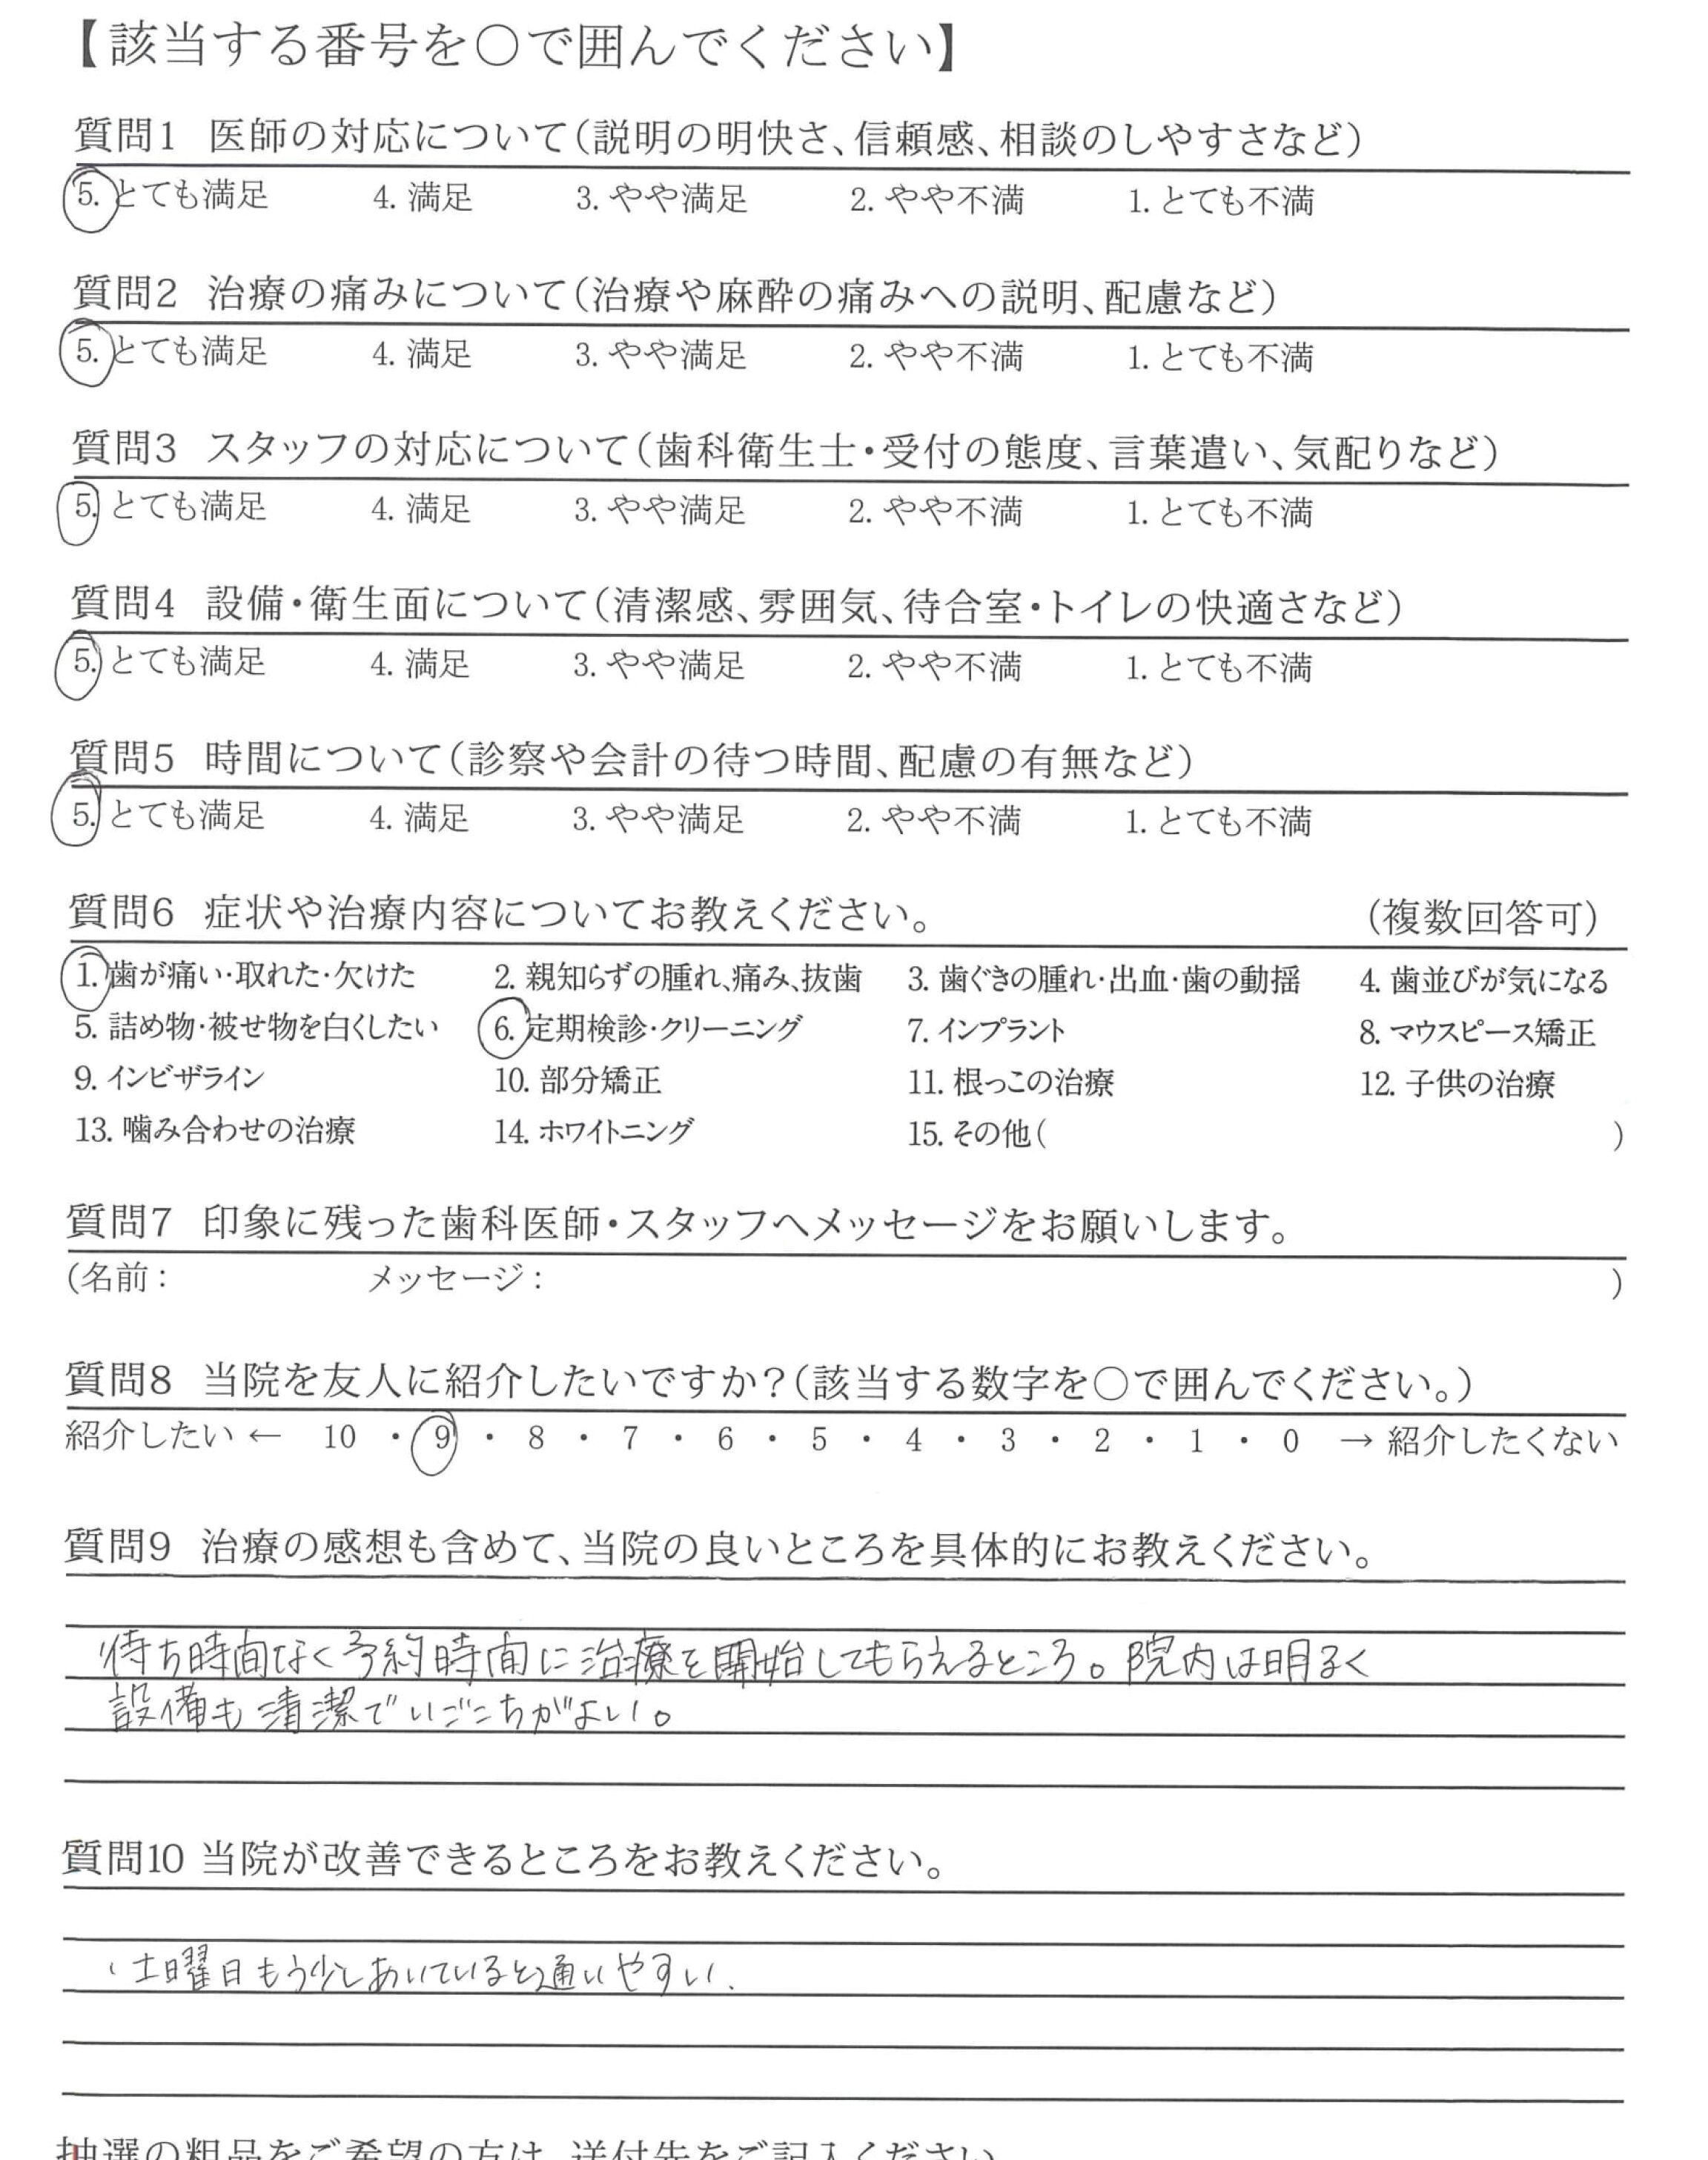 【該当する番号を○で囲んでください】
質問1 医師の対応について(説明の明快さ、信頼感、相談のしやすさなど)
5. とても満足 4. 満足 3. やや満足 2. やや不満 1. とても不満
質問2 治療の痛みについて(治療や麻酔の痛みへの説明、配慮など)
5. とても満足 4. 満足 3. やや満足 2. やや不満 1. とても不満
質問3 スタッフの対応について(歯科衛生士・受付の態度、言葉遣い、気配りなど)
5. とても満足 4. 満足 3. やや満足 2. やや不満 1. とても不満
質問4 設備・衛生面について(清潔感、雰囲気、待合室・トイレの快適さなど)
5. とても満足 4. 満足 3. やや満足 2. やや不満 1. とても不満
質問5 時間について(診察や会計の待つ時間、配慮の有無など)
5. とても満足 4. 満足 3. やや満足 2. やや不満 1. とても不満
質問6 症状や治療内容についてお教えください。 (複数回答可)
1. 歯が痛い・取れた・欠けた 2. 親知らずの腫れ、痛み、抜歯 3. 歯ぐきの腫れ・出血・歯の動揺 4. 歯並びが気になる
5. 詰め物・被せ物を白くしたい 6. 定期検診・クリーニング 7. インプラント 8. マウスピース矯正
9. インビザライン 10. 部分矯正 11. 根っこの治療 12. 子供の治療
13. 噛み合わせの治療 14. ホワイトニング 15. その他( )
質問7 印象に残った歯科医師・スタッフへメッセージをお願いします。
(名前: メッセージ: )
質問8 当院を友人に紹介したいですか?(該当する数字を○で囲んでください。)
紹介したい ← 10 ・ 9 ・ 8 ・ 7 ・ 6 ・ 5 ・ 4 ・ 3 ・ 2 ・ 1 ・ 0 → 紹介したくない
質問9 治療の感想も含めて、当院の良いところを具体的にお教えください。
待ち時間なく予約時間に治療を開始してもらえるところ。院内は明るく
設備も清潔でいごこちがよい。
質問10 当院が改善できるところをお教えください。
土曜日もう少しあいていると通いやすい.
抽選の粗品をご希望の方は、送付先をご記入ください